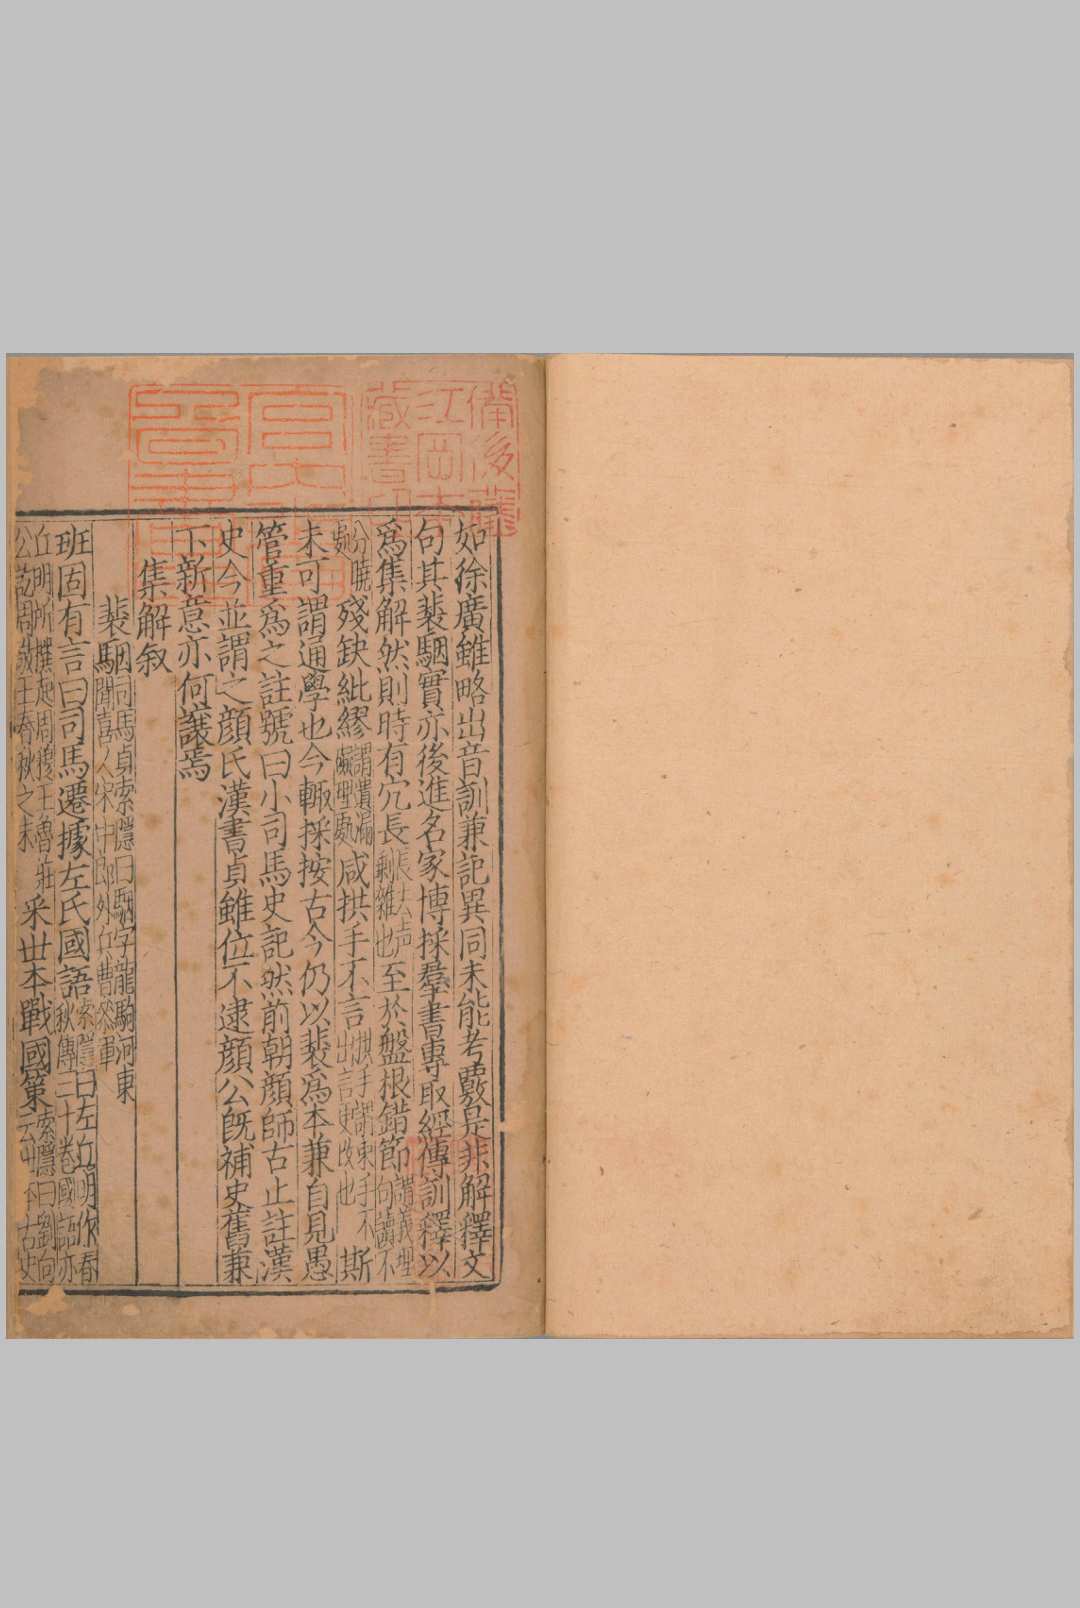 如徐廣雖略出音訓兼記異同未能考覈是非解釋文
句其裴駰實亦後進名家博採羣書專取經傳訓釋以
爲集解然則時有冗長長去声剩雜也至於盤根錯節謂義理句讀不
分曉處殘缺紕繆謂遺漏咸拱手不言拱手謂束手不出言更改也斯
未可謂通學也今輒採按古今仍以裴爲本兼自見愚
管重爲之註號曰小司馬史記然前朝顏師古止註漢
史今並謂之顏氏漢書貞雖位不逮顏公旣補史舊兼
下新意亦何讓焉
集解叙
裴駰司馬貞索隱曰駰字龍駒河東聞喜人宋中郎外兵曹叅軍
班固有言曰司馬遷據左氏國語索隱曰左丘明作春秋傳三十卷國語亦
丘明所撰起周穆王魯莊公訖周敬王春秋之末采世本戰國策索隱曰劉向云世本古史
備後藤
江岡本
藏書印